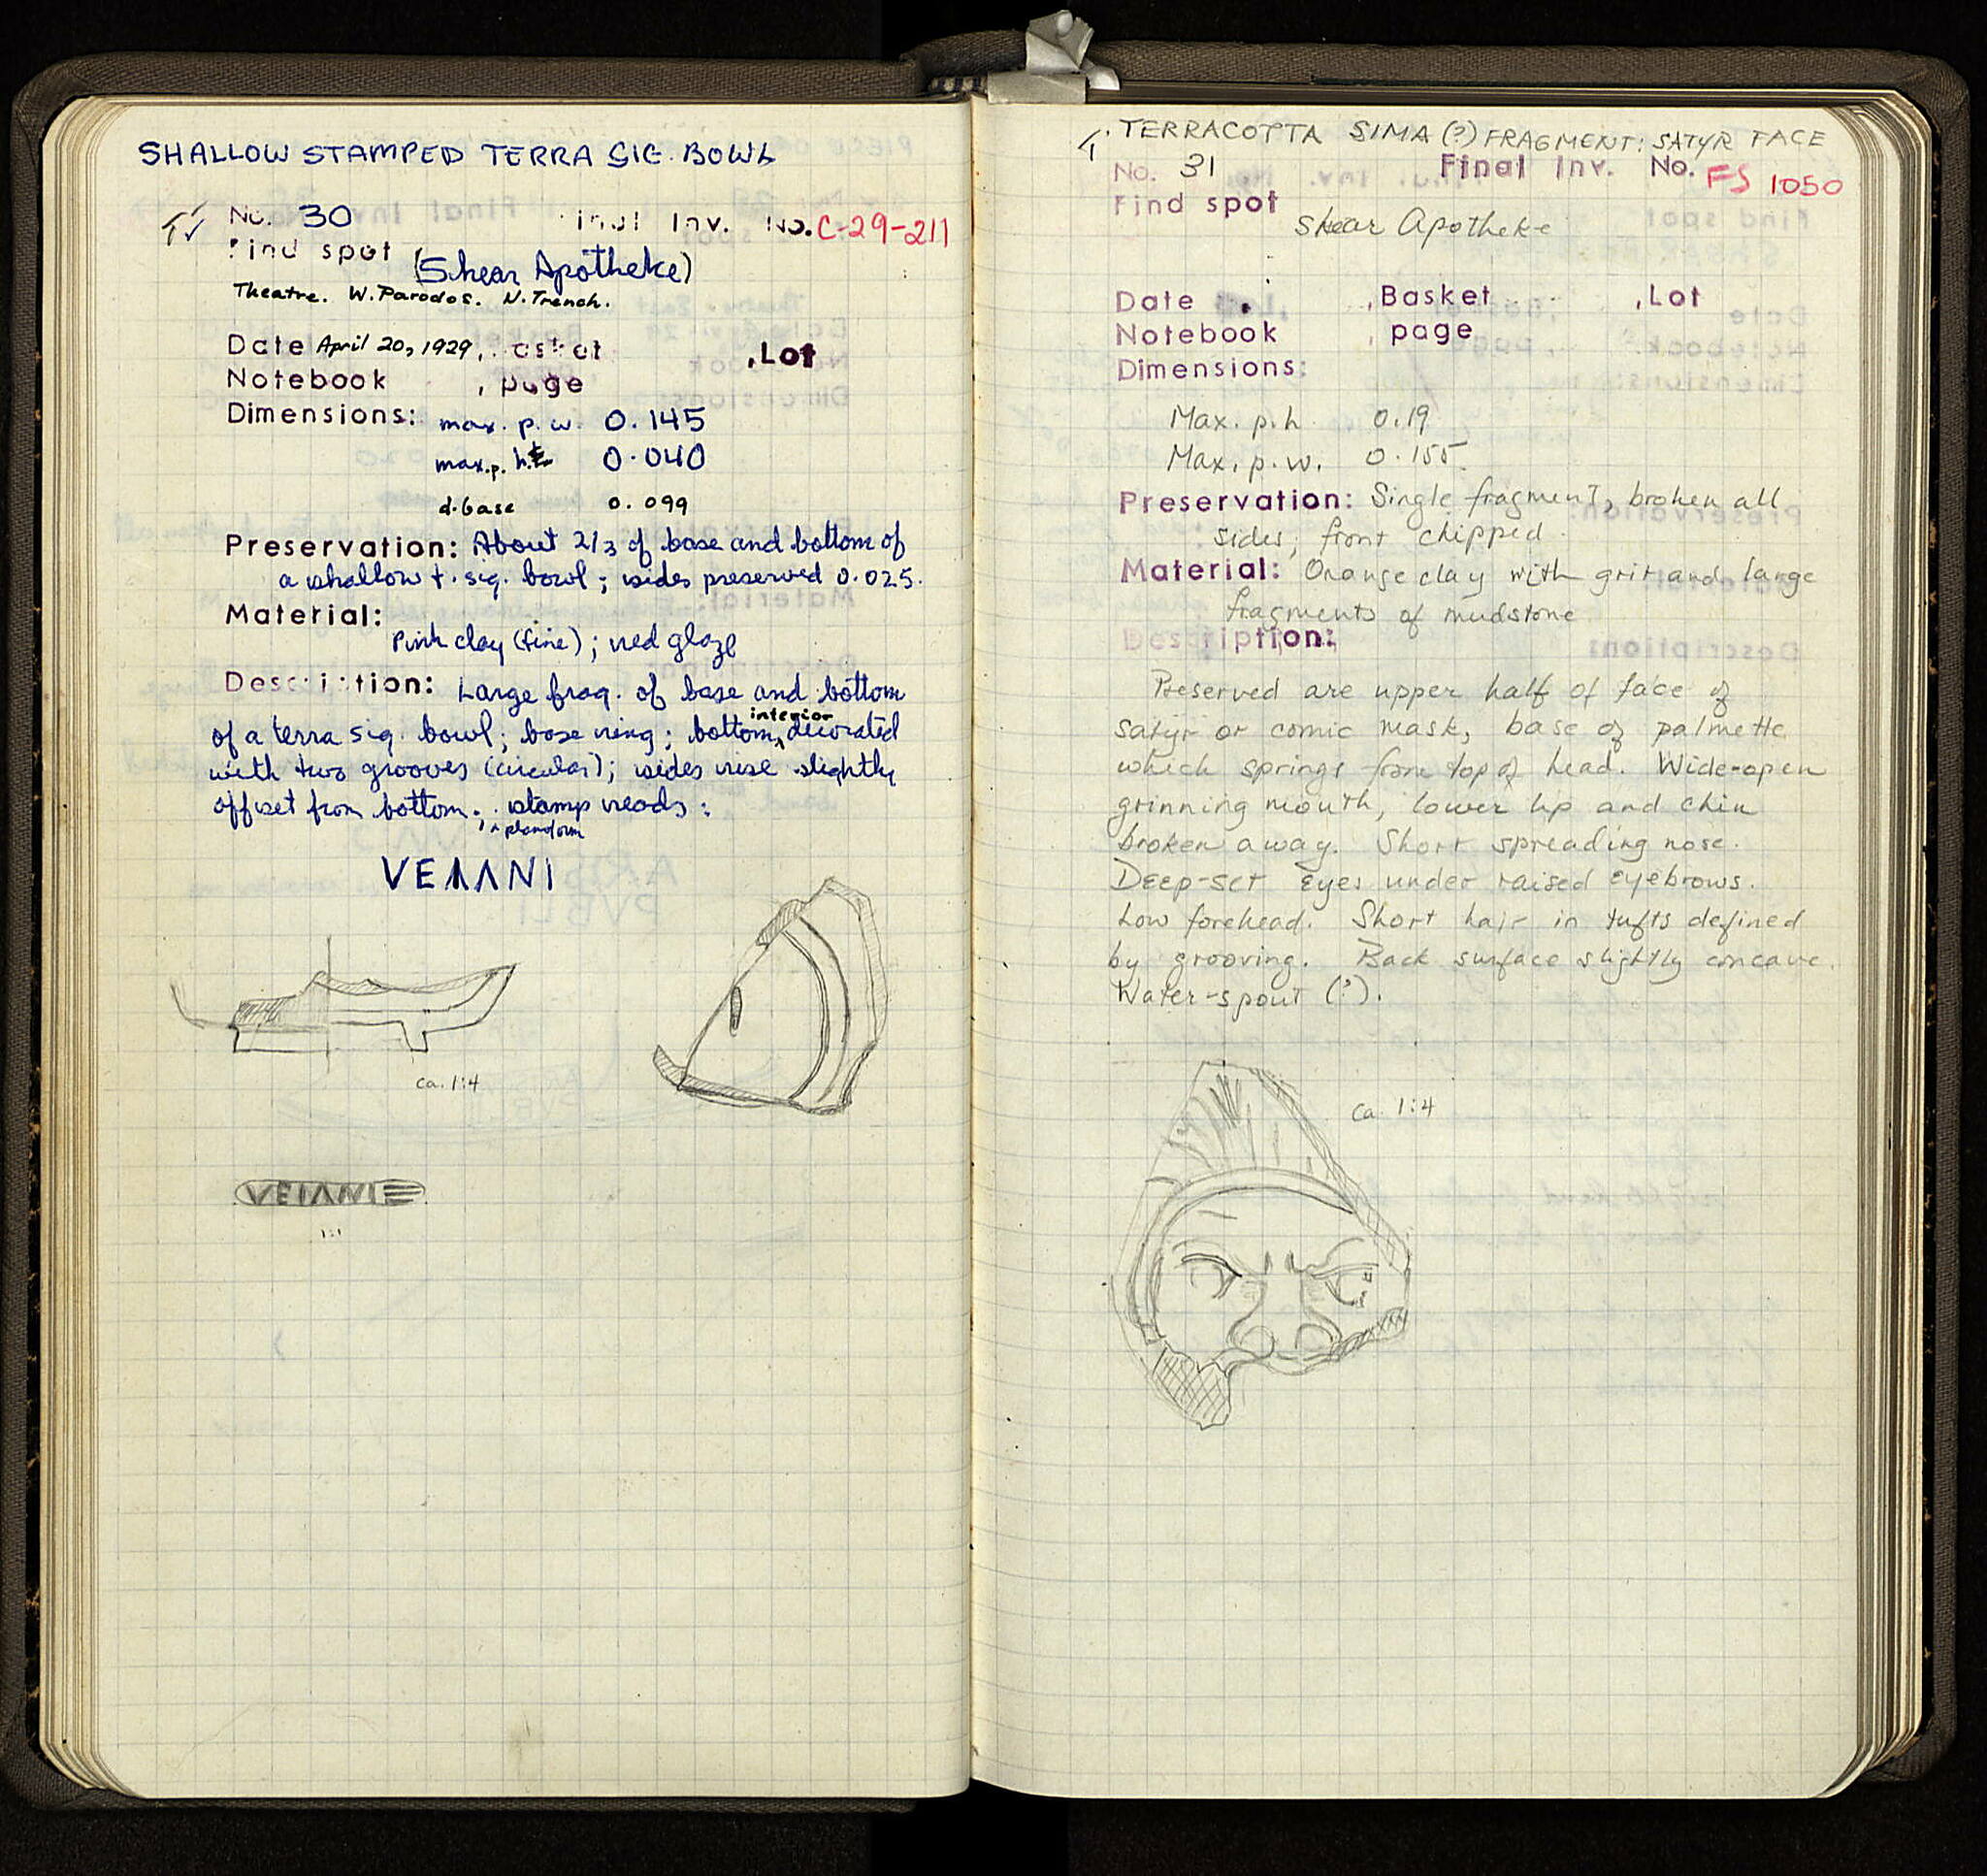 SHALLOW STAMPED TERRA SIG. BOWL
No. 30 Final Inv. No. C-29-211
Find spot (Shear Apotheke)
Theatre. W. Parodos. N. Trench.
Date April 20, 1929, Basket , Lot
Notebook , page
Dimensions: max. p. w. 0.145
max. p. ht. 0.040
d. base 0.099
Preservation: About 2/3 of base and bottom of
a shallow t. sig. bowl; sides preserved 0.025.
Material:
Pink clay (fine); red glaze
Description: Large frag. of base and bottom
of a terra sig. bowl; base ring; bottom interior decorated
with two grooves (circular); sides rise slightly
offset from bottom; stamp reads:
VEIANI
ca. 1:4
VEIANI
1:1
TERRACOTTA SIMA (?) FRAGMENT: SATYR FACE
No. 31 Final Inv. No. FS 1050
Find spot
Shear Apotheke
Date , Basket , Lot
Notebook , page
Dimensions:
Max. p. h. 0.19
Max. p. w. 0.155
Preservation: Single fragment, broken all
sides, front chipped.
Material: Orange clay with grit and large
fragments of mudstone
Description:
Preserved are upper half of face of
satyr or comic mask, base of palmette
which springs from top of head. Wide-open
grinning mouth, lower lip and chin
broken away. Short spreading nose.
Deep-set eyes under raised eyebrows.
Low forehead. Short hair in tufts defined
by grooving. Back surface slightly concave.
Water-spout (?).
ca. 1:4